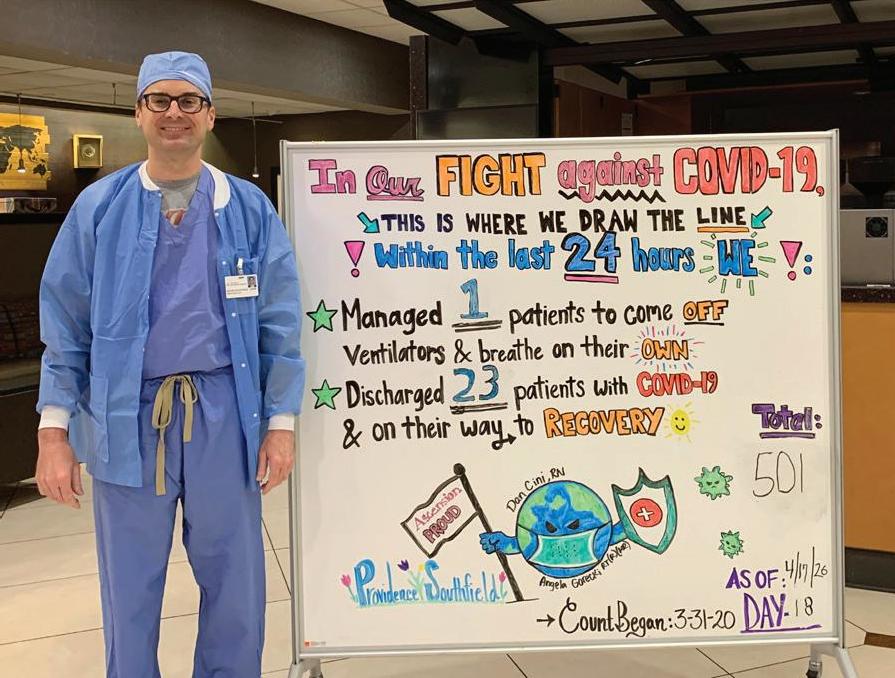 In Our FIGHT against COVID-19,
THIS IS WHERE WE DRAW THE LINE
! Within the last 24 hours WE !:
Managed 1 patients to come OFF
Ventilators & breathe on their OWN
Discharged 23 patients with COVID-19
& on their way to RECOVERY
Total:
501
Ascension
PROUD
Dan Cini, RN
Angela Gorecki RT(R)(MR)
Providence Southfield
AS OF: 4/17/20
DAY-18
Count Began: 3-31-20